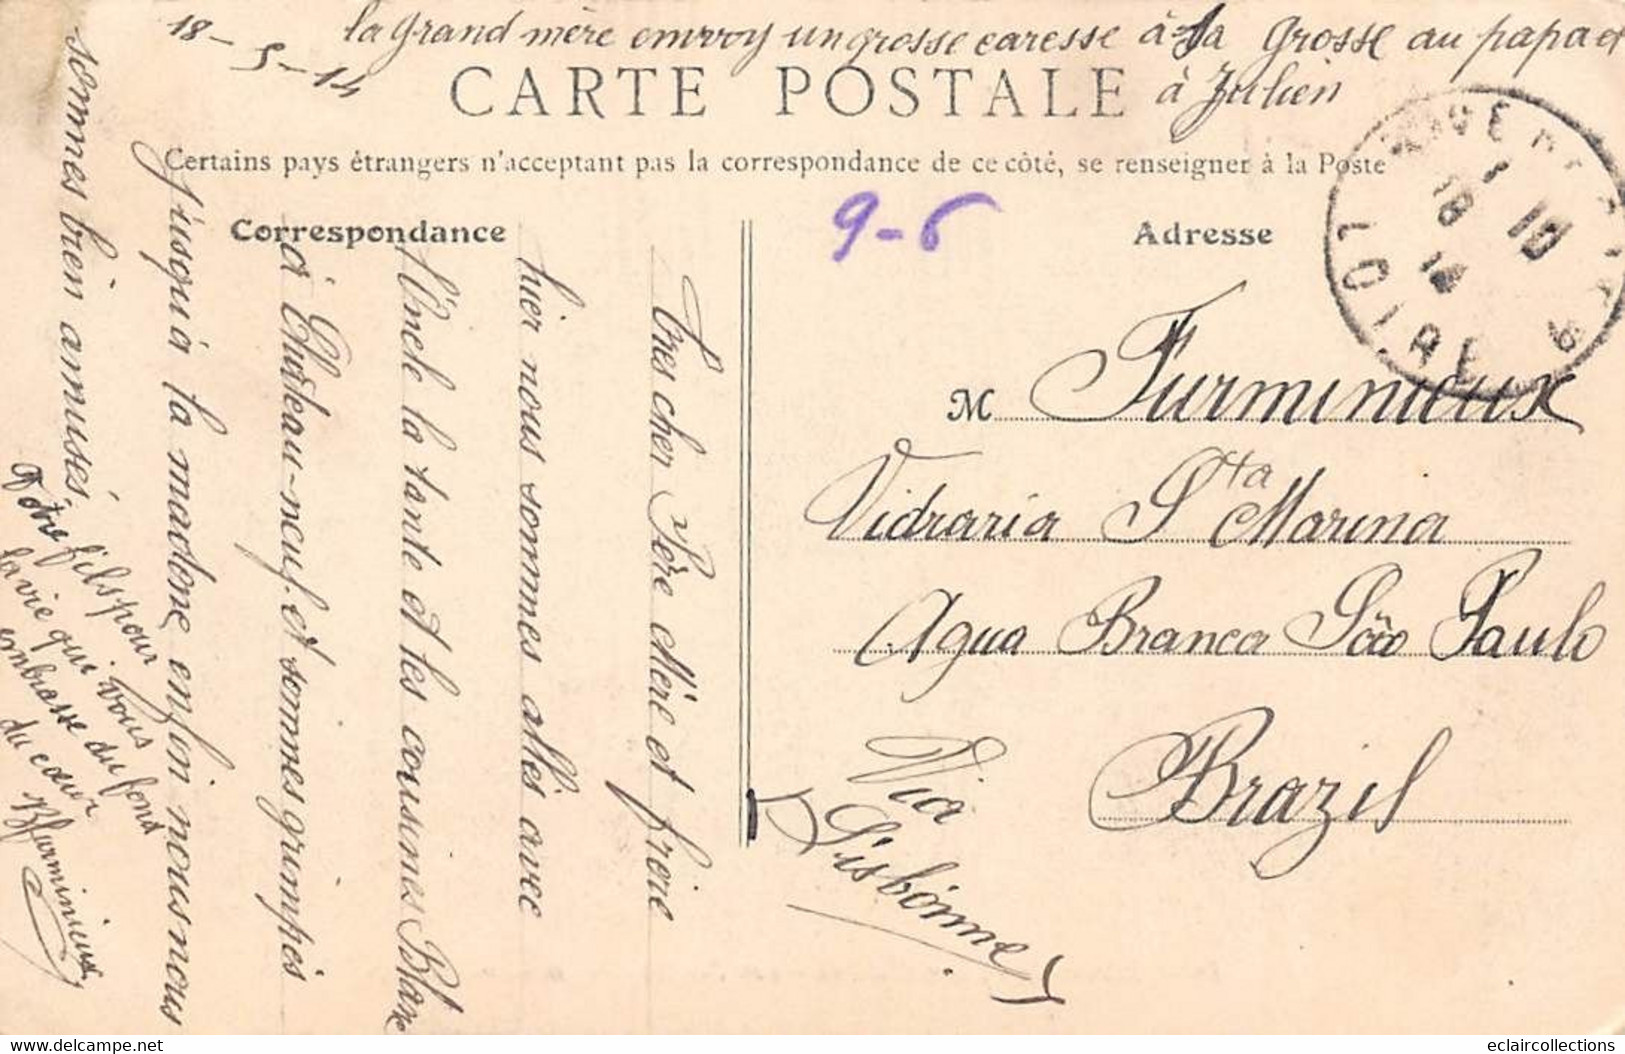 la grand mère envoy un grosse caresse à la grosse au papa et
à Julien
18-5-14
CARTE POSTALE
Certains pays étrangers n'acceptant pas la correspondance de ce côté, se renseigner à la Poste
Correspondance
Adresse
9-6
Tres cher Père Mère et frère
hier nous sommes allés avec
l'Oncle la tante et les cousines Blanc
à Château-neuf. et sommes grimpés
jusqu'à la madone enfin nous nous
sommes bien amusés,
Votre fils pour
la vie qui vous
embrasse du fond
du cœur
Furminieux
M Furminieux
Vidraria Sta Marina
Agua Branca São Paulo
Brazil
Via
Lisbonne
RIVE DE GIER
LOIRE
18
10
14
eclaircollections
www.delcampe.net